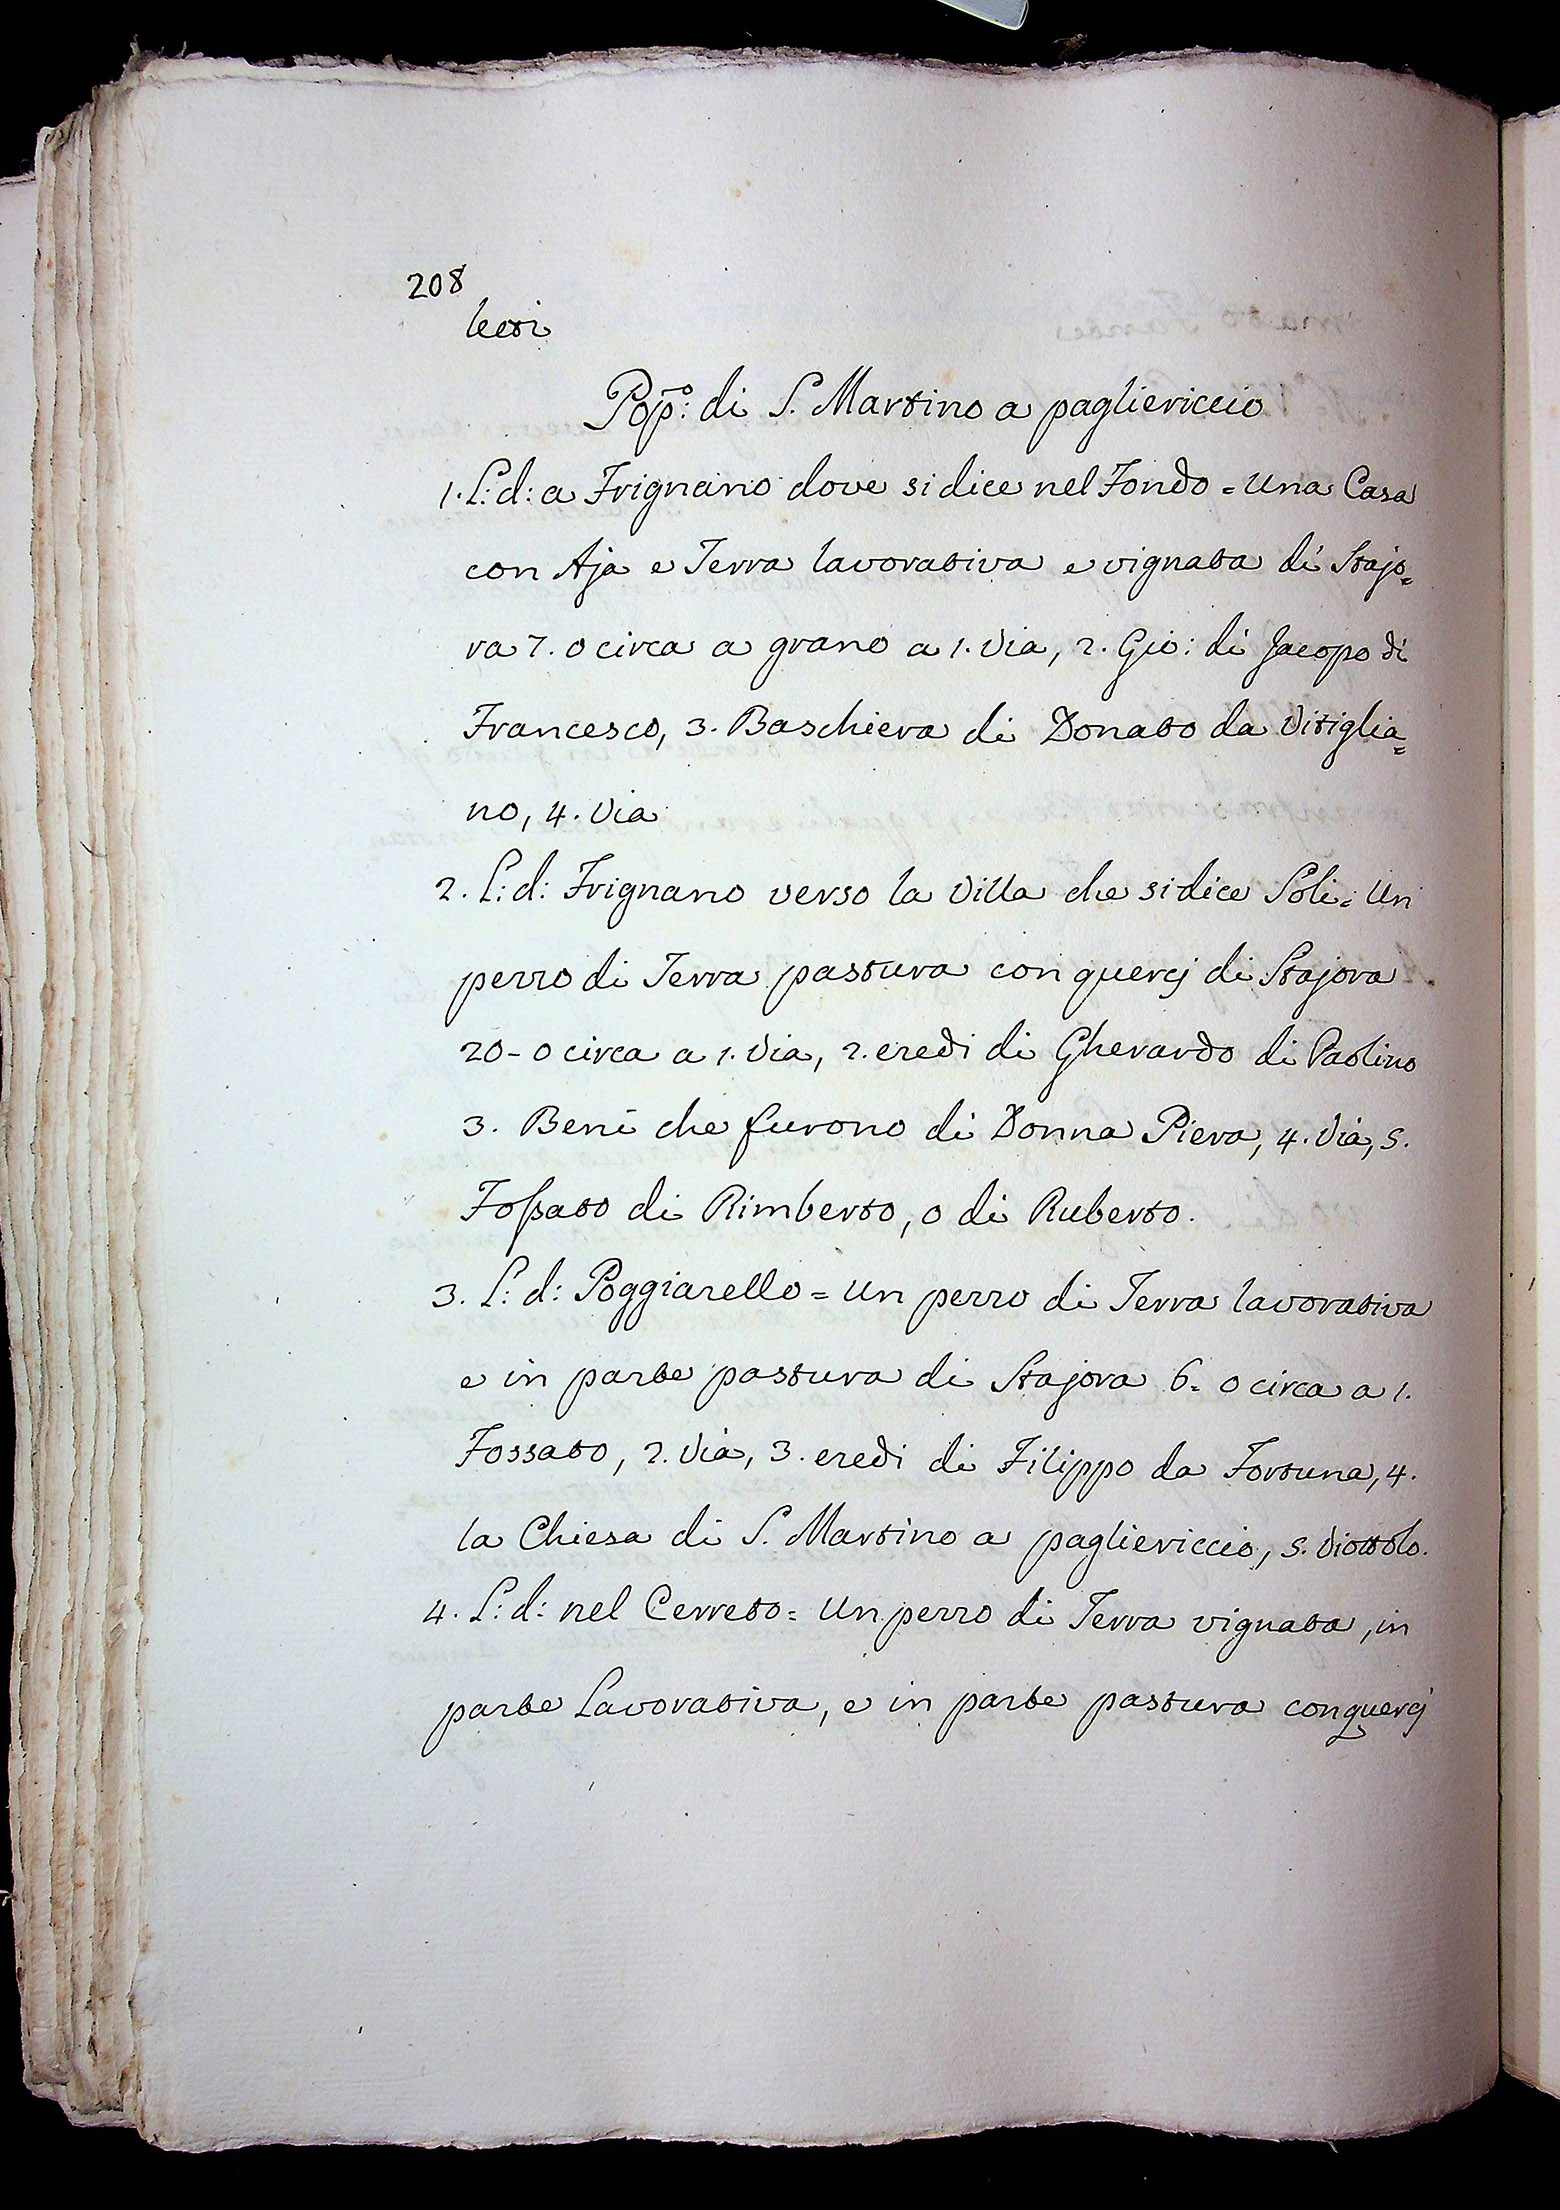 208
lecti
Pop̃.º: di S. Martino a pagliericcio
1. L: d: a Frignano dove si dice nel Fondo = Una Casa
con Aja e Terra lavorativa e vignata di Stajo=
ra 7. o circa a grano a 1. Via, 2. Gio: di Jacopo di
Francesco, 3. Baschiera di Donato da Vitiglia=
no, 4. Via
2. L: d: Frignano verso la Villa che si dice Soli = Un
pezzo di Terra pastura con quercj di Stajora
20 - o circa a 1. Via, 2. eredi di Gherardo di Paolino
3. Beni che furono di Donna Piera, 4. Via, 5.
Fossato di Rimberto, o di Ruberto.
3. L: d: Poggiarello = Un pezzo di Terra lavorativa
e in parte pastura di Stajora 6 = o circa a 1.
Fossato, 2. Via, 3. eredi di Filippo da Fortuna, 4.
la Chiesa di S. Martino a pagliericcio, 5. Viottolo.
4. L: d: nel Cerreto = Un pezzo di Terra vignata, in
parte Lavorativa, e in parte pastura con quercj